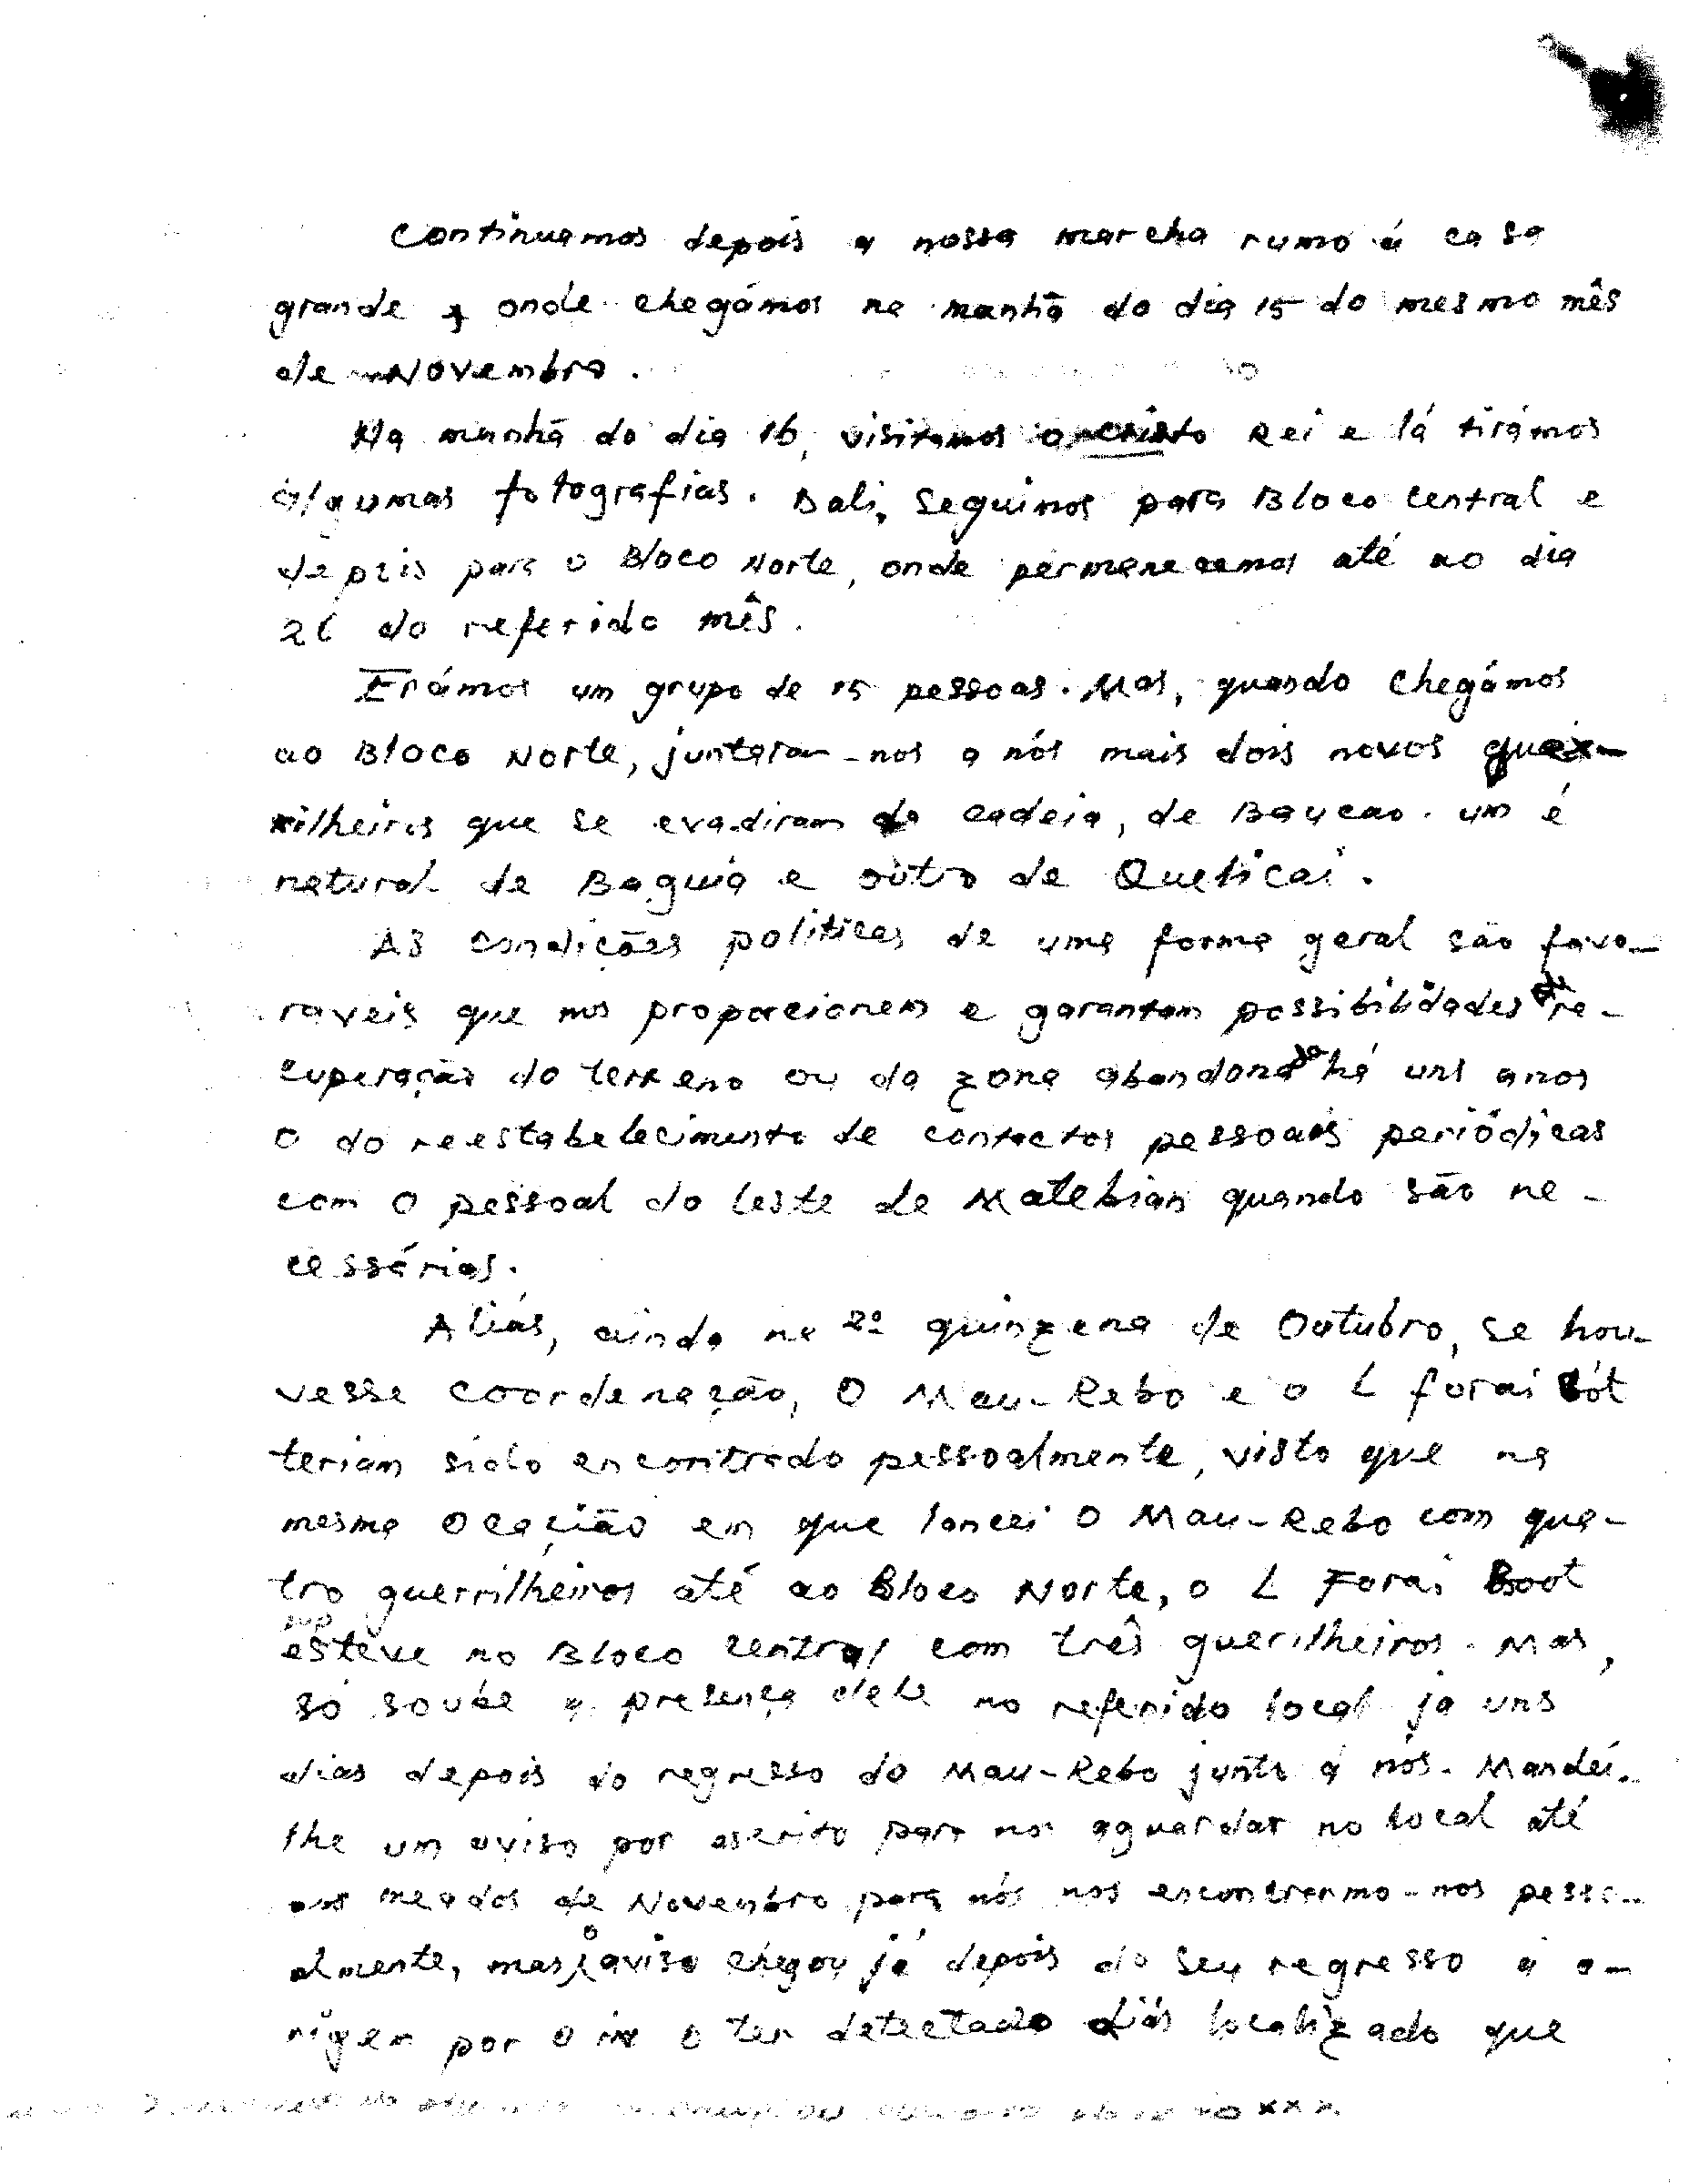 Continuamos depois a nossa marcha rumo á casa
grande onde chegámos na manhã do dia 15 do mesmo mês
de Novembro.
Na manhã do dia 16, visitamos o cristo Rei e lá tirámos
algumas fotografias. Dali, seguimos para Bloco Central e
depois para o Bloco Norte, onde permanecemos até ao dia
26 do referido mês.
Erámos um grupo de 15 pessoas. Mas, quando chegámos
ao Bloco Norte, juntaram-nos a nós mais dois novos guer-
rilheiros que se evadiram da cadeia, de Baucao. um é
natural de Baguia e outro de Quelicai.
As condições politicas de uma forma geral são favo-
raveis que nos proporcionem e garantam possibilidades de re-
cuperação do terreno ou da zona abandonada há uns anos
o do reestabelecimento de contactos pessoais periódicas
com o pessoal do leste de Matebian quando são ne-
cessárias.
Aliás, ainda na 2ª quinzena de Outubro, se hou-
vesse coordenação, o Mau-Rebo e o L forai Bót
teriam sido encontrado pessoalmente, visto que na
mesma ocação em que lancei o Mau-Rebo com qua-
tro guerrilheiros até ao Bloco Norte, o L Forai Boot
esteve no Bloco central com três guerilheiros. Mas,
só soube a presença dele no referido local ja uns
dias depois do regresso do Mau-Rebo junto a nós. Mandei-
lhe um aviso por escrito para nos aguardar no local até
aos meados de Novembro para nós nos encontrarmo-nos pesso-
almente, mas o aviso chegou já depois do seu regresso a o-
rigem por o in o ter detectado aliás localizado que